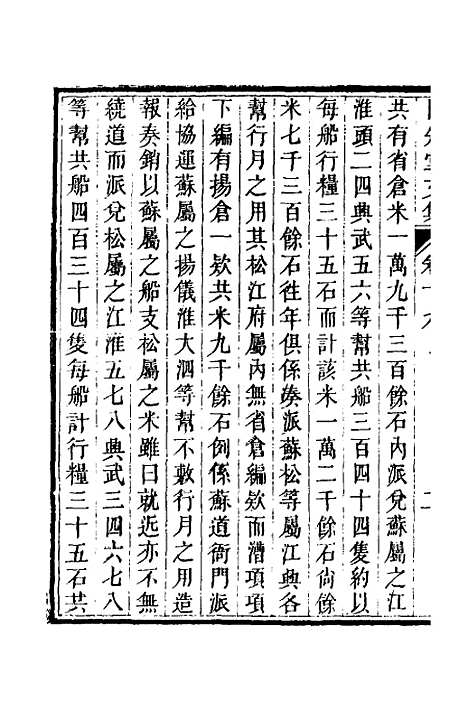 共有省倉米一萬九千三百餘石內派兌蘇屬之江
淮頭二四興武五六等幫共船三百四十四隻約以
每船行糧三十五石而計該米一萬二千餘石尙餘
米七千三百餘石徃年俱係湊派蘇松等屬江興各
幫行月之用其松江府屬內無省倉編欵而漕項項
下編有揚倉一欵共米九千餘石例係蘇道衙門派
給協運蘇屬之揚儀淮大泗等幫不敷行月之用造
報奏銷以蘇屬之船支松屬之米雖曰就近亦不無
繞道而派兌松屬之江淮五七八興武三四六七八
等幫共船四百三十四隻每船計行糧三十五石共